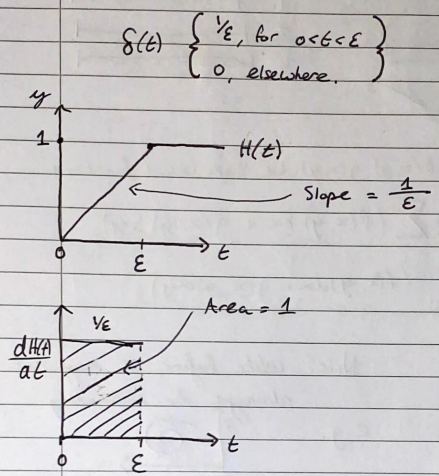 δ(t) { 1/ε, for 0<t<ε }
0, elsewhere.
y
1
H(t)
Slope = 1/ε
0
ε
t
Area = 1
1/ε
dH(t)/dt
0
ε
t